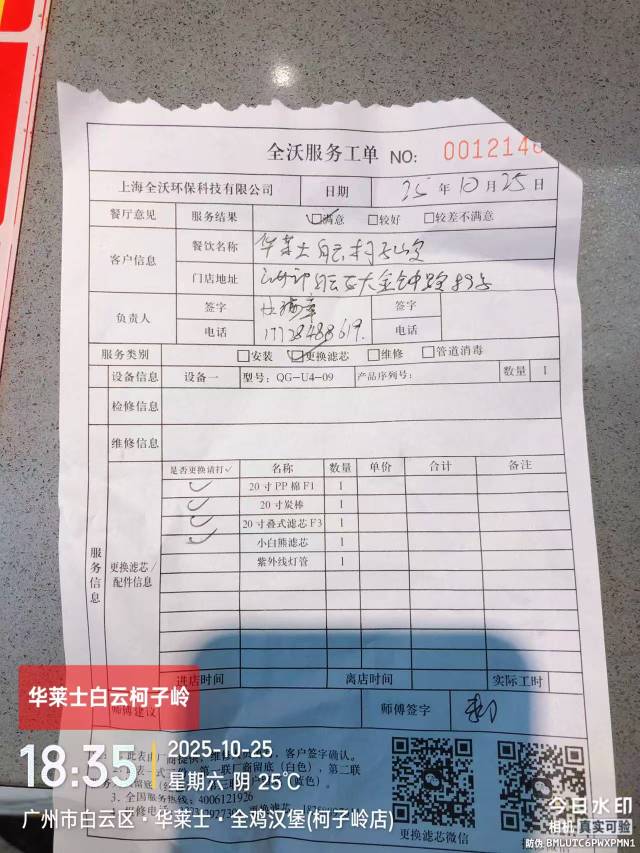 全沃服务工单 NO: 0012146
上海全沃环保科技有限公司 日期 25 年 10 月 25 日
餐厅意见 服务结果 ☑满意 □较好 □较差不满意
客户信息 餐饮名称 华莱士白云柯子岭
门店地址 白云区大金钟路89号
负责人 签字 签字
电话 17728488619. 电话
服务类别 □安装 ☑更换滤芯 □维修 □管道消毒
设备信息 设备一 型号: QG-U4-09 产品序列号: 数量 1
检修信息
维修信息
服务信息 更换滤芯/配件信息
是否更换请打✓ 名称 数量 单价 合计 备注
✓ 20寸PP棉F1 1
✓ 20寸炭棒 1
✓ 20寸叠式滤芯F3 1
✓ 小白熊滤芯 1
紫外线灯管 1
进店时间 离店时间 实际工时
师傅建议 师傅签字
此表由厂商提供、维修 客户签字确认。
一式 第一联厂商留底(白色)，第二联
留底
3. 全国服务热线: 4006121926
更换滤芯微信
华莱士白云柯子岭
18:35 2025-10-25
星期六 阴 25℃
广州市白云区·华莱士·全鸡汉堡(柯子岭店)
今日水印
相机 真实可验
防伪 BMLUTC6PWXPMN1